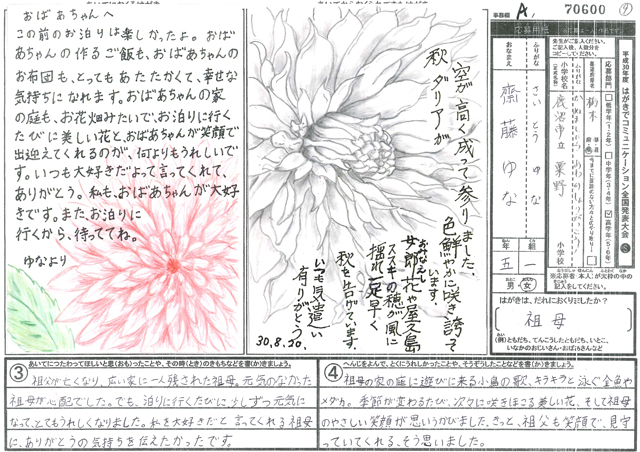 おばあちゃんへ
この前のお泊りは楽しかったよ。おば
あちゃんの作るご飯も、おばあちゃんの
お布団も、とってもあたたかくて、幸せな
気持ちになれます。おばあちゃんの家
の庭も、お花畑みたいで、お泊りに行く
たびに美しい花と、おばあちゃんが笑顔で
出迎えてくれるのが、何よりもうれしいで
す。いつも大好きだよって言ってくれて、
ありがとう。私も、おばあちゃんが大好
きです。また、お泊りに
行くから、待っててね。
ゆなより
空が高く成って参りました。
秋ダリアが
色鮮やかに咲き誇って
います。
おみなえし
女郎花や屋久島
ススキの穂が風に
揺れて足早く
秋を告げています。
いつも気遣い
有りがとう
30.8.20.
事務局
A1
70600
④
応募用紙
平成30年度 はがきでコミュニケーション全国発表大会
S
応募部門
低学年(1・2年)
中学年(3・4年)
高学年(5・6年)
栃木
小学校名
鹿沼市立 粟野
小学校
ふりがな
さいとう ゆな
おなまえ
齋藤 ゆな
五年
一組
男・女
※応募者 本人が太枠の中の
記入をしてください。
はがきは、だれにおくりましたか?
祖母
(例)ともだち、てんこうしたともだち、いとこ、
いなかのおじいさん・おばあさんなど
③
あいてにつたわってほしいと思(おも)ったことや、その時(とき)のきもちなどを書(か)きましょう。
祖父が亡くなり、広い家に一人残された祖母。元気のなかった
祖母が心配でした。でも、泊りに行くたびに、少しずつ元気に
なって、とてもうれしくなりました。私を大好きだと言ってくれる祖母
に、ありがとうの気持ちを伝えたかったです。
④
へんじをよんで、とくにうれしかったことや、そうぞうしたことなどを書(か)きましょう。
祖母の家の庭に遊びに来る小鳥の歌、キラキラと泳ぐ金魚や
メダカ。季節が変わるたび、次々に咲きほこる美しい花、そして祖母
のやさしい笑顔が思いうかびました。きっと、祖父も笑顔で、見守
っていてくれる、そう思いました。